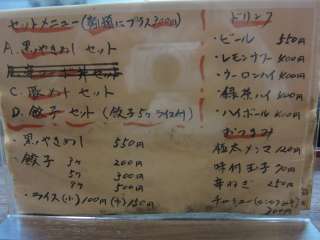 セットメニュー(割増にプラス200円)
A. 黒やきめし セット
C. 豚メシ セット
D. 餃子 セット (餃子5ケ ライス付)
・黒やきめし 550円
・餃子 3ケ 200円
5ケ 300円
9ケ 500円
・ライス(小)100円 (中)150円
ドリンク
・ビール 550
・レモンサワー 400円
・ウーロンハイ 400円
・緑茶ハイ 400円
・ハイボール 400円
おつまみ
極太メンマ 120円
味付玉子 70円
辛ねぎ 250円
チャーシュー
200円